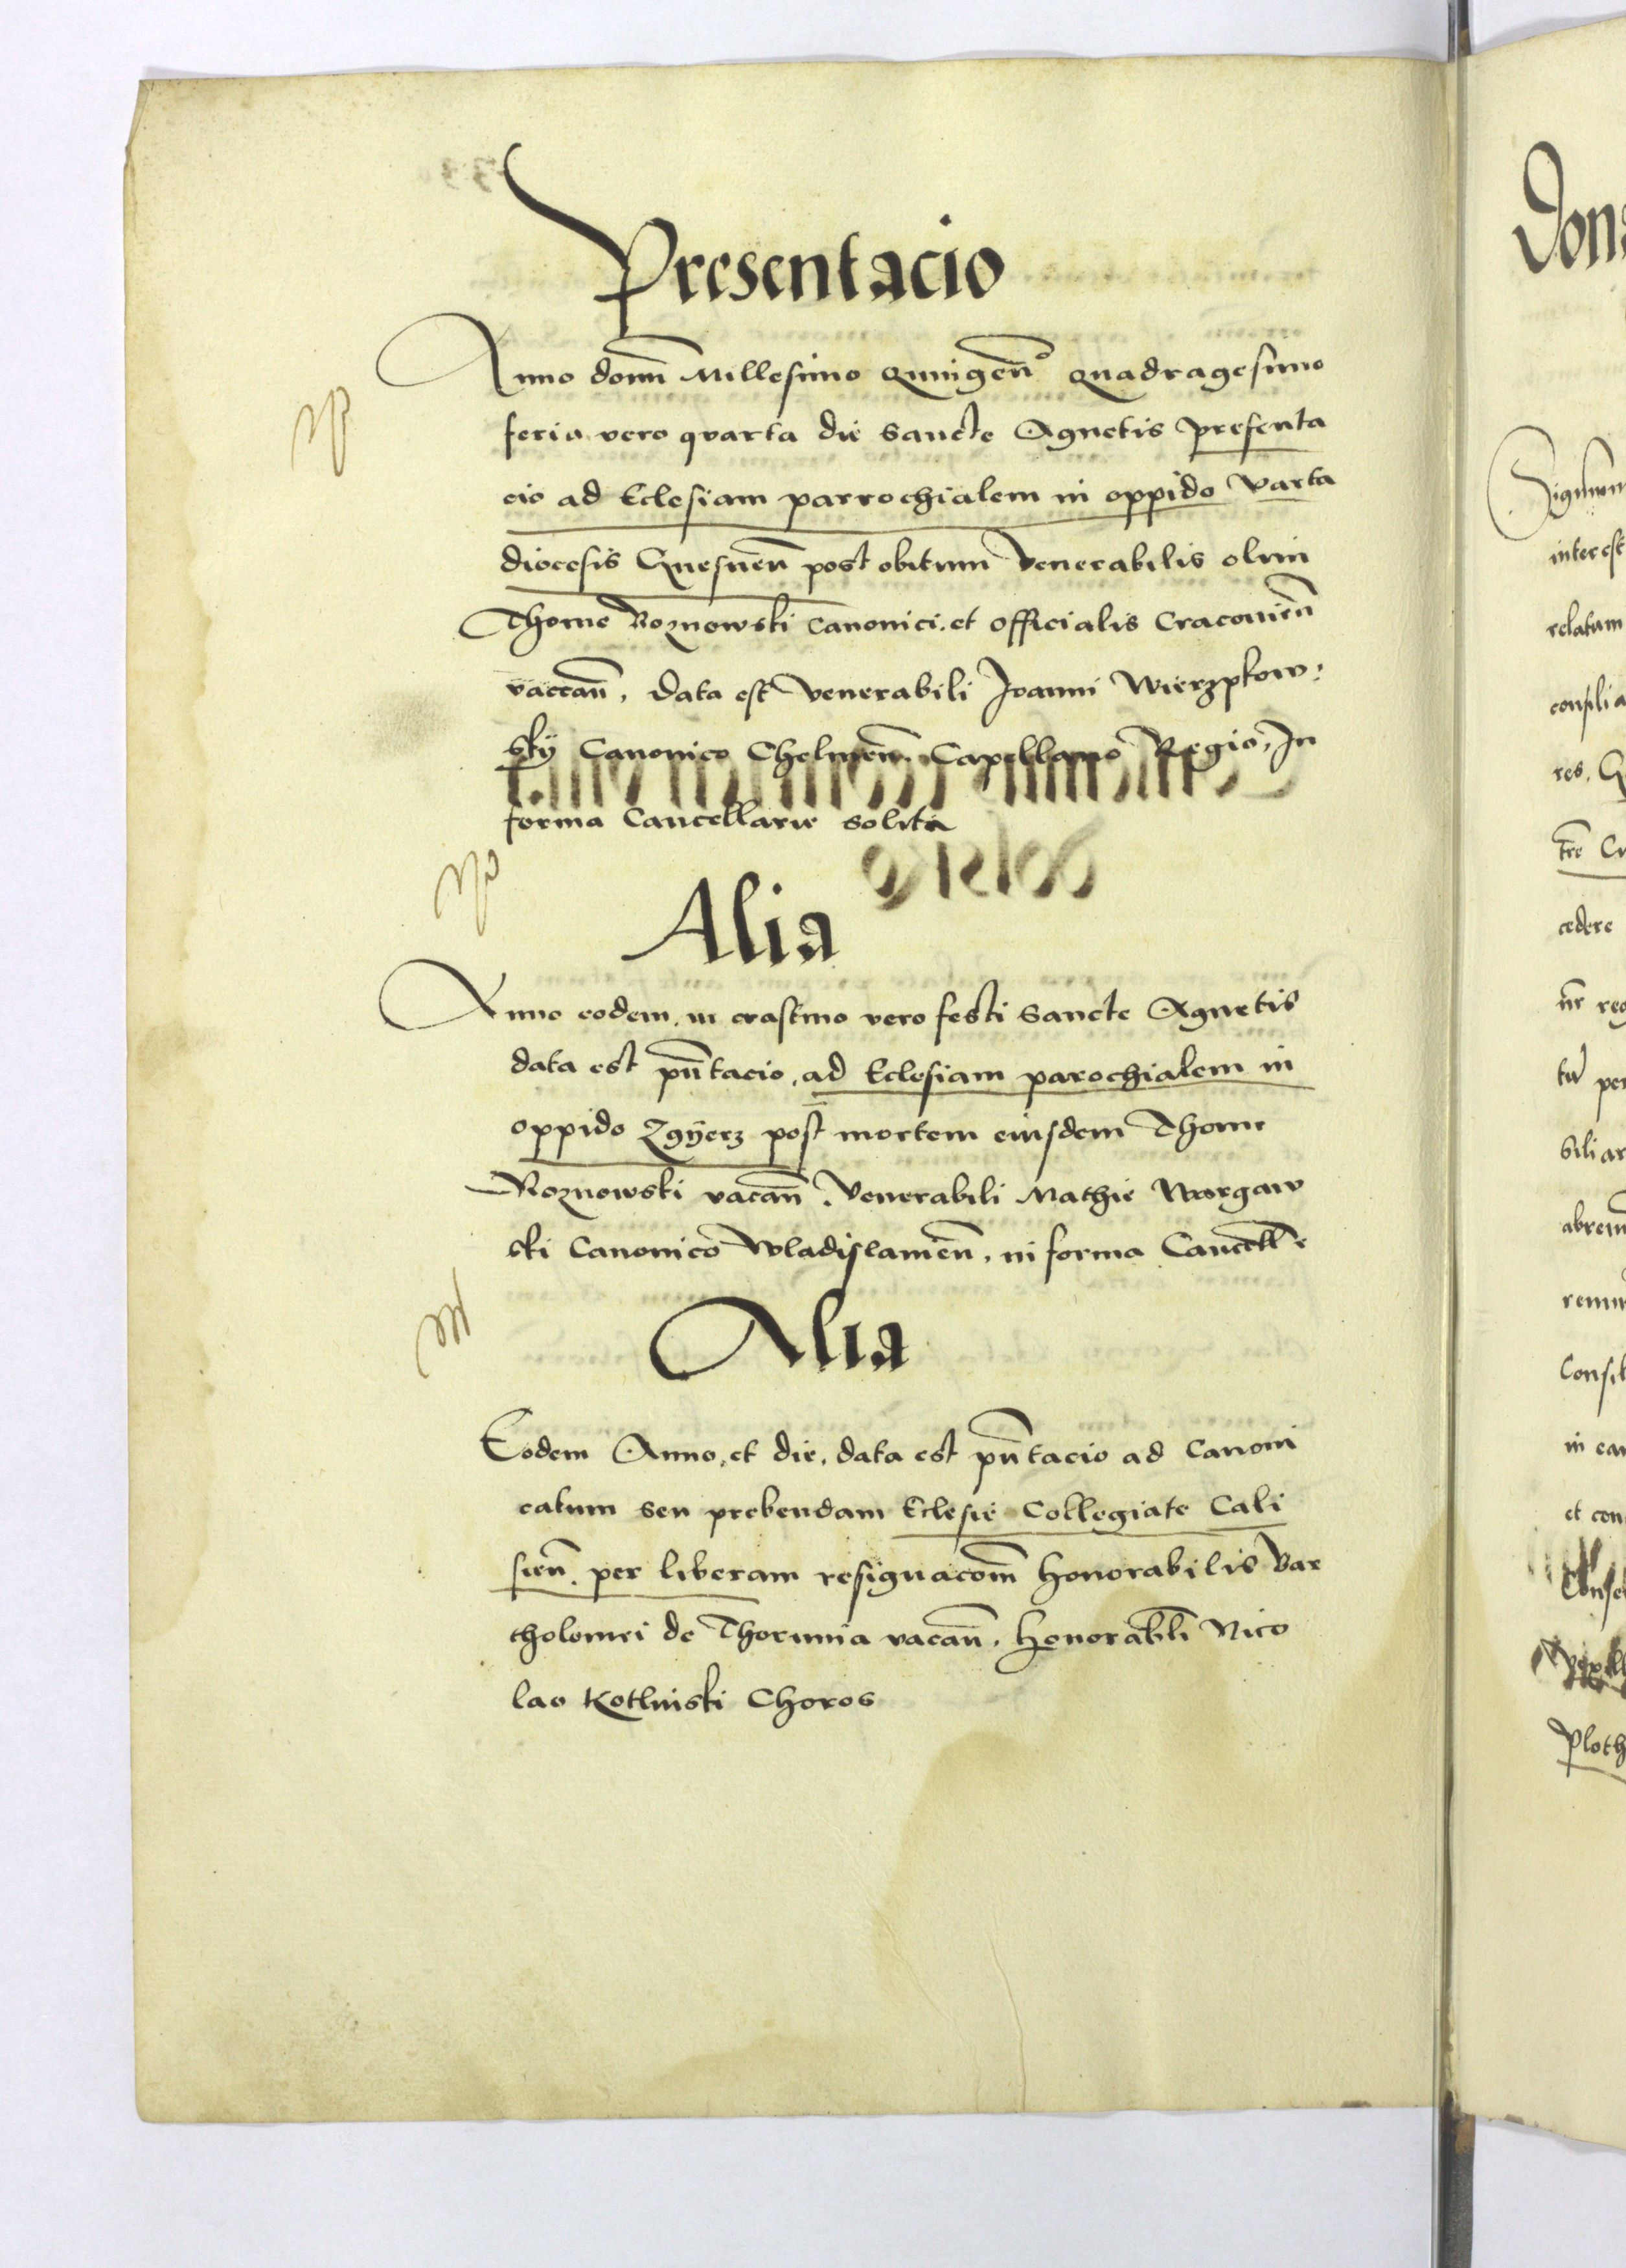 Presentacio
Anno domi Millesimo quingen° quadragesimo
feria vero quarta die sancte Agnetis presenta
cio ad Eclesiam parrochialem in oppido Varta
diocesis Gnesnen post obitum Venerabilis olim
Thome Roznowski Canonici et officialis Cracovien
vaccan, data est Venerabili Joanni Wierzpkow:
sky Canonico Chelmen Capellano Regio, In
forma Cancellarie solita
Alia
Anno eodem in crastino vero festi sancte Agnetis
data est pntacio, ad Eclesiam parochialem in
oppido Zgÿerz post mortem eiusdem Thome
Roznowski vacan. Venerabili Mathie Wargaw
cki Canonico Wladislamien, in forma Cancelle
Alia
Eodem Anno, et die, data est pntacio ad Canoni
catum seu prebendam Eclesie Collegiate Cali
sien. per liberam resignacom honorabilis Bar
tholomei de Thorunia vacan. honorabli Nico
lao Kotlinski Choros
Don
interest
relatum
consilia
res. G
cedere
et con
Ploth